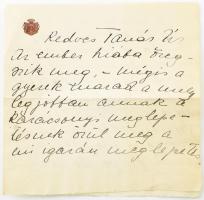 Kedves Tanár Úr
Az ember hiába öreg-
szik meg, – mégis a
gyerek marad a mely
legjobban annak a
karácsonyi meglepe-
tésnek örül meg a
mi igazán meglepetés.